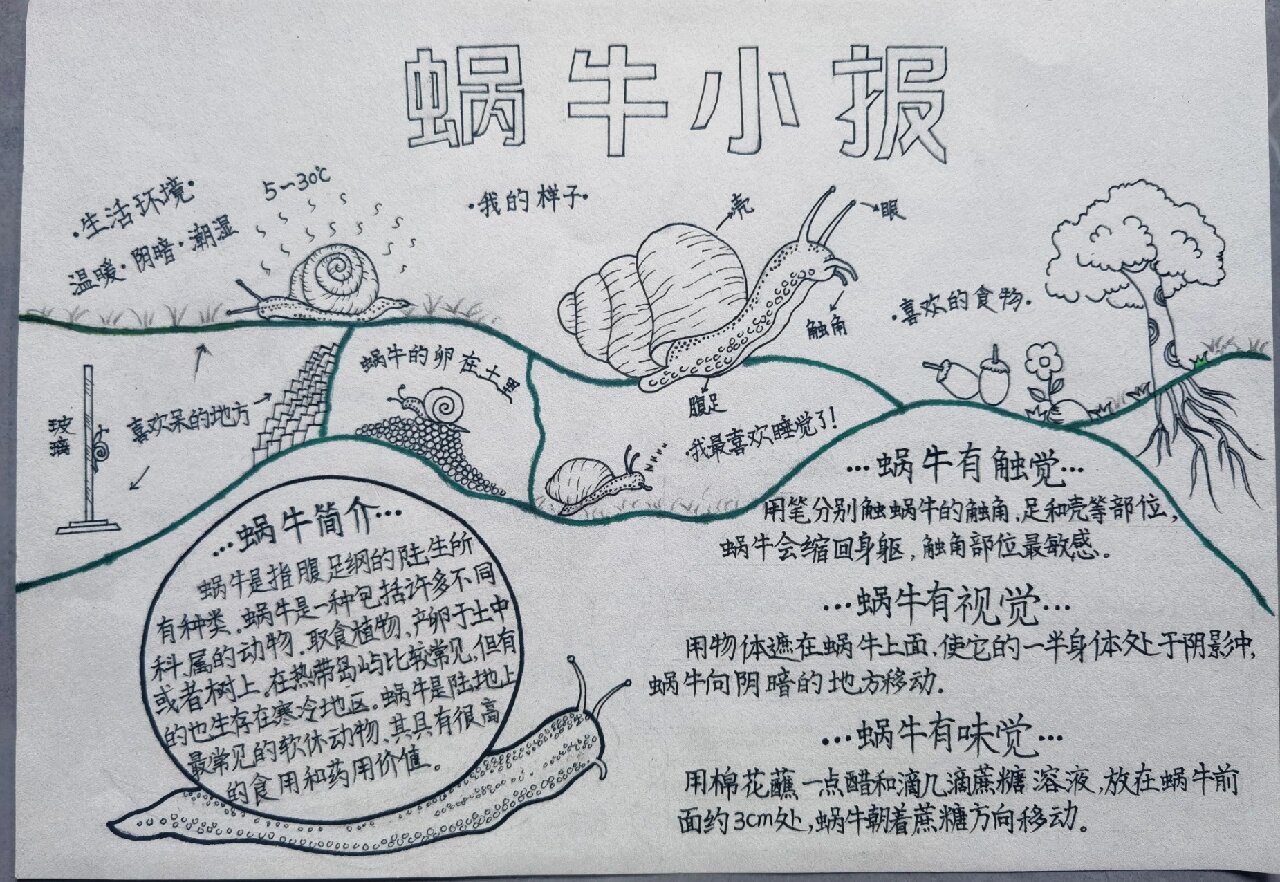 蜗牛小报
·生活环境·
5~30℃
温暖·阴暗·潮湿
·我的样子·
壳
眼
触角
腹足
·喜欢的食物·
玻璃
喜欢呆的地方
蜗牛的卵在土里
·我最喜欢睡觉了!
…蜗牛简介…
蜗牛是指腹足纲的陆生所
有种类、蜗牛是一种包括许多不同
科、属的动物、取食植物、产卵于土中
或者树上、在热带岛屿比较常见、但有
的也生存在寒冷地区。蜗牛是陆地上
最常见的软体动物、其具有很高
的食用和药用价值。
…蜗牛有触觉…
用笔分别触蜗牛的触角、足和壳等部位,
蜗牛会缩回身躯,触角部位最敏感。
…蜗牛有视觉…
用物体遮在蜗牛上面、使它的一半身体处于阴影中,
蜗牛向阴暗的地方移动.
…蜗牛有味觉…
用棉花蘸一点醋和滴几滴蔗糖溶液,放在蜗牛前
面约3cm处,蜗牛朝着蔗糖方向移动。